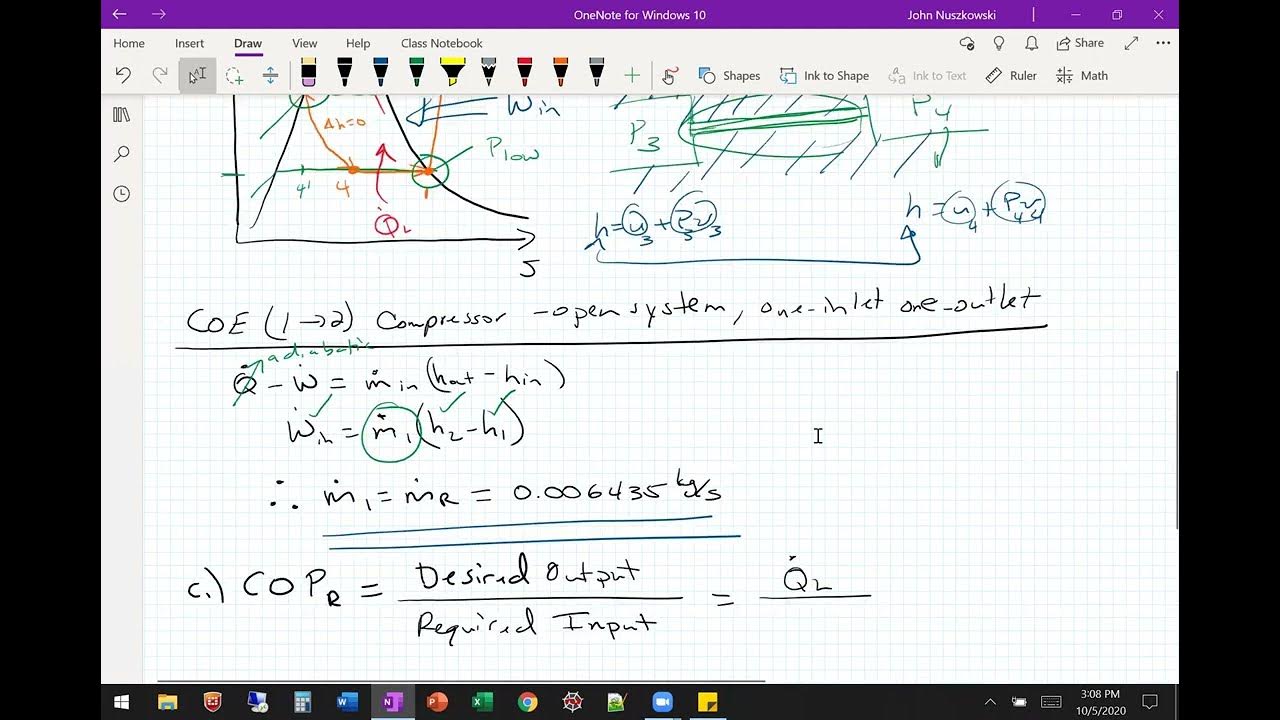 OneNote for Windows 10
John Nuszkowski
Home Insert Draw View Help Class Notebook
Share
Shapes Ink to Shape Ink to Text Ruler Math
Win
Δh=0
P3
P4
Plow
4' 4 1
Q̇L
S
h = u3 + P3v3
h = u4 + P4v4
COE (1→2) Compressor - open system, one-inlet one-outlet
adiabatic
Q̇ - Ẇ = ṁin (hout - hin)
Ẇin = ṁ1 (h2 - h1)
∴ ṁ1 = ṁR = 0.006435 kg/s
c.) COPR = Desired Output / Required Input = Q̇L
3:08 PM
10/5/2020